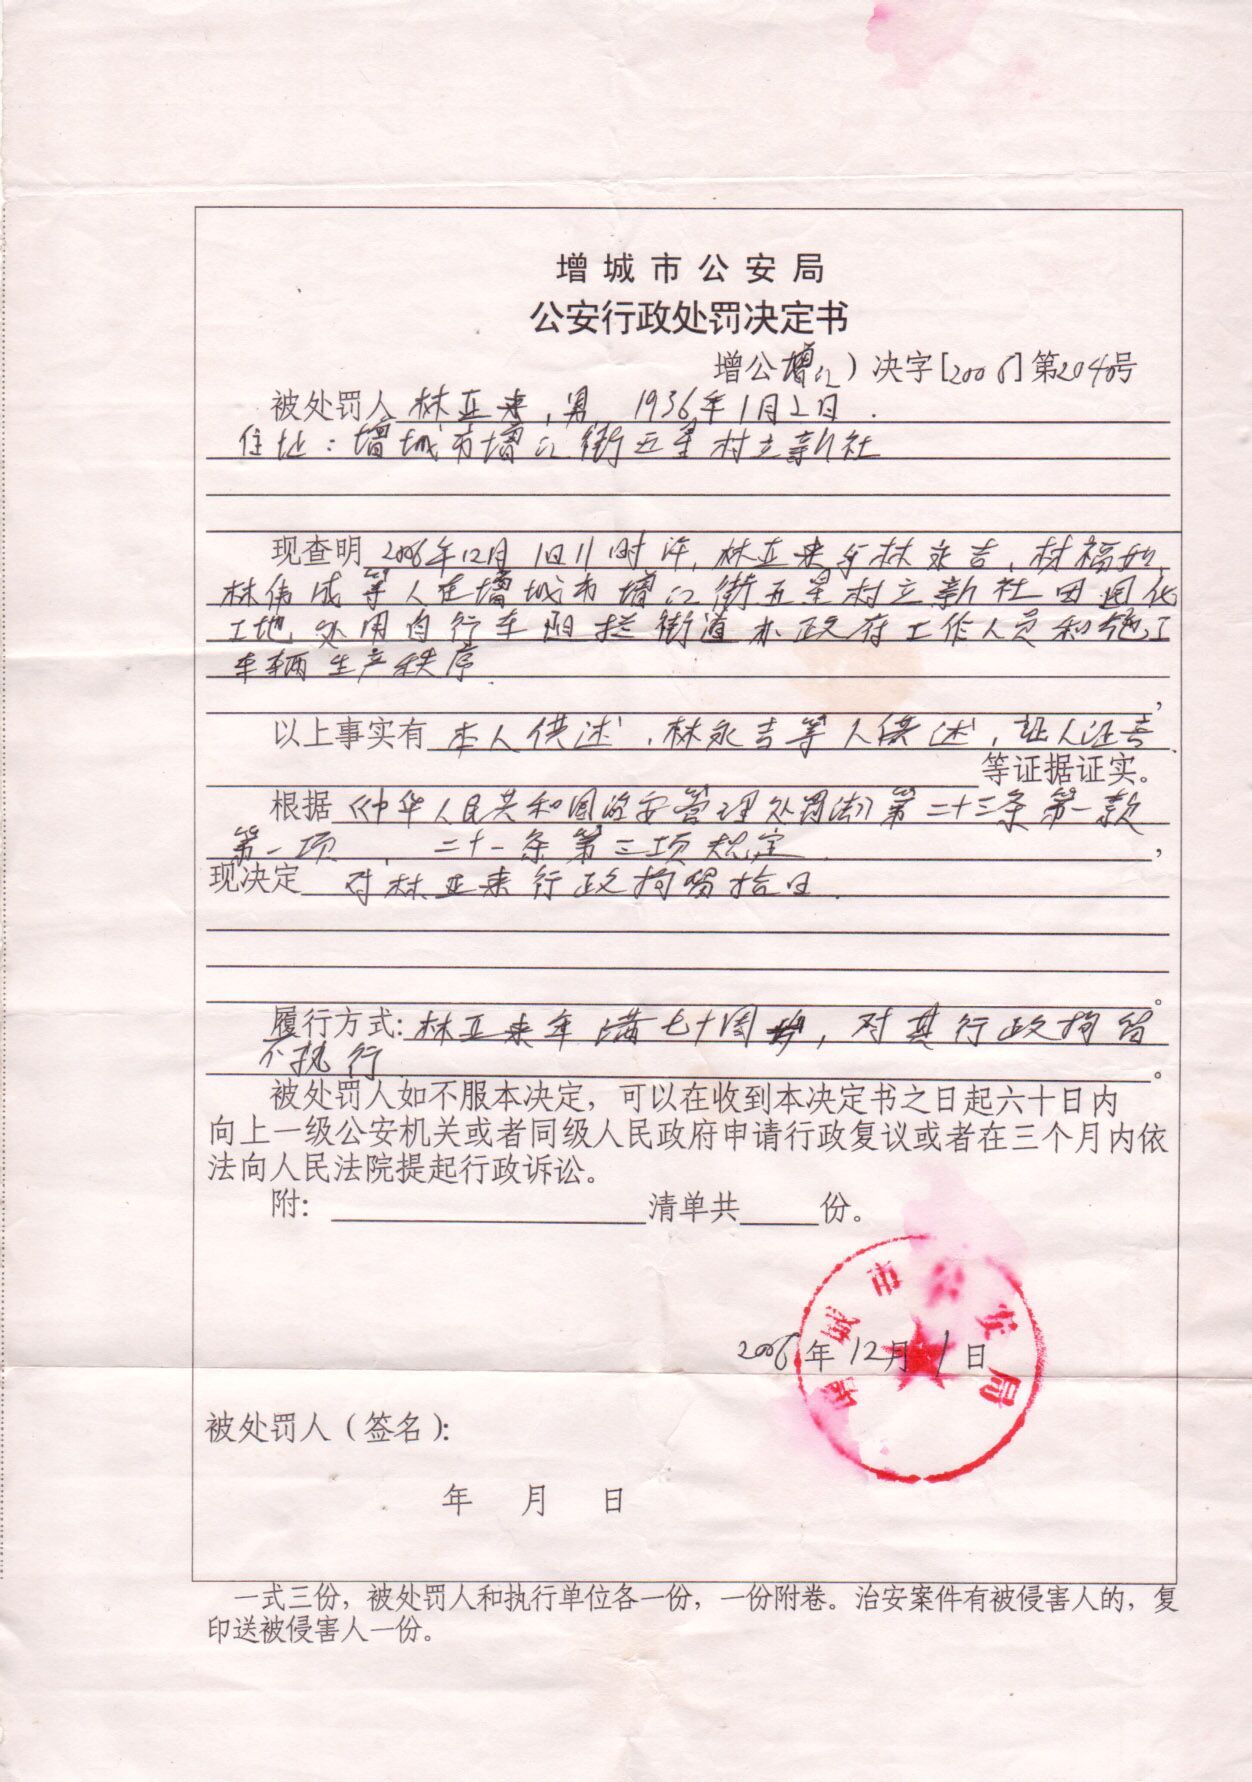 增城市公安局
公安行政处罚决定书
增公增江）决字[2006]第2040号
被处罚人 林亚来，男，1936年1月2日．
住址：增城市增江街五星村立新社
现查明 2006年12月1日11时许，林亚来与林永吉，林福如，
林伟成等人在增城市增江街五星村立新社田园化
工地，处用自行车阻拦街道办政府工作人员和施工
车辆生产秩序．
，
以上事实有 本人供述，林永吉等人供述，证人证言
等证据证实。
根据《中华人民共和国治安管理处罚法》第二十三条第一款
第一项，二十一条第三项规定．，
现决定 对林亚来行政拘留拾日．
。
履行方式：林亚来年满七十周岁，对其行政拘留
不执行．。
被处罚人如不服本决定，可以在收到本决定书之日起六十日内
向上一级公安机关或者同级人民政府申请行政复议或者在三个月内依
法向人民法院提起行政诉讼。
附： 清单共 份。
增城市公安局
2006年12月1日
被处罚人（签名）：
年 月 日
一式三份，被处罚人和执行单位各一份，一份附卷。治安案件有被侵害人的，复
印送被侵害人一份。